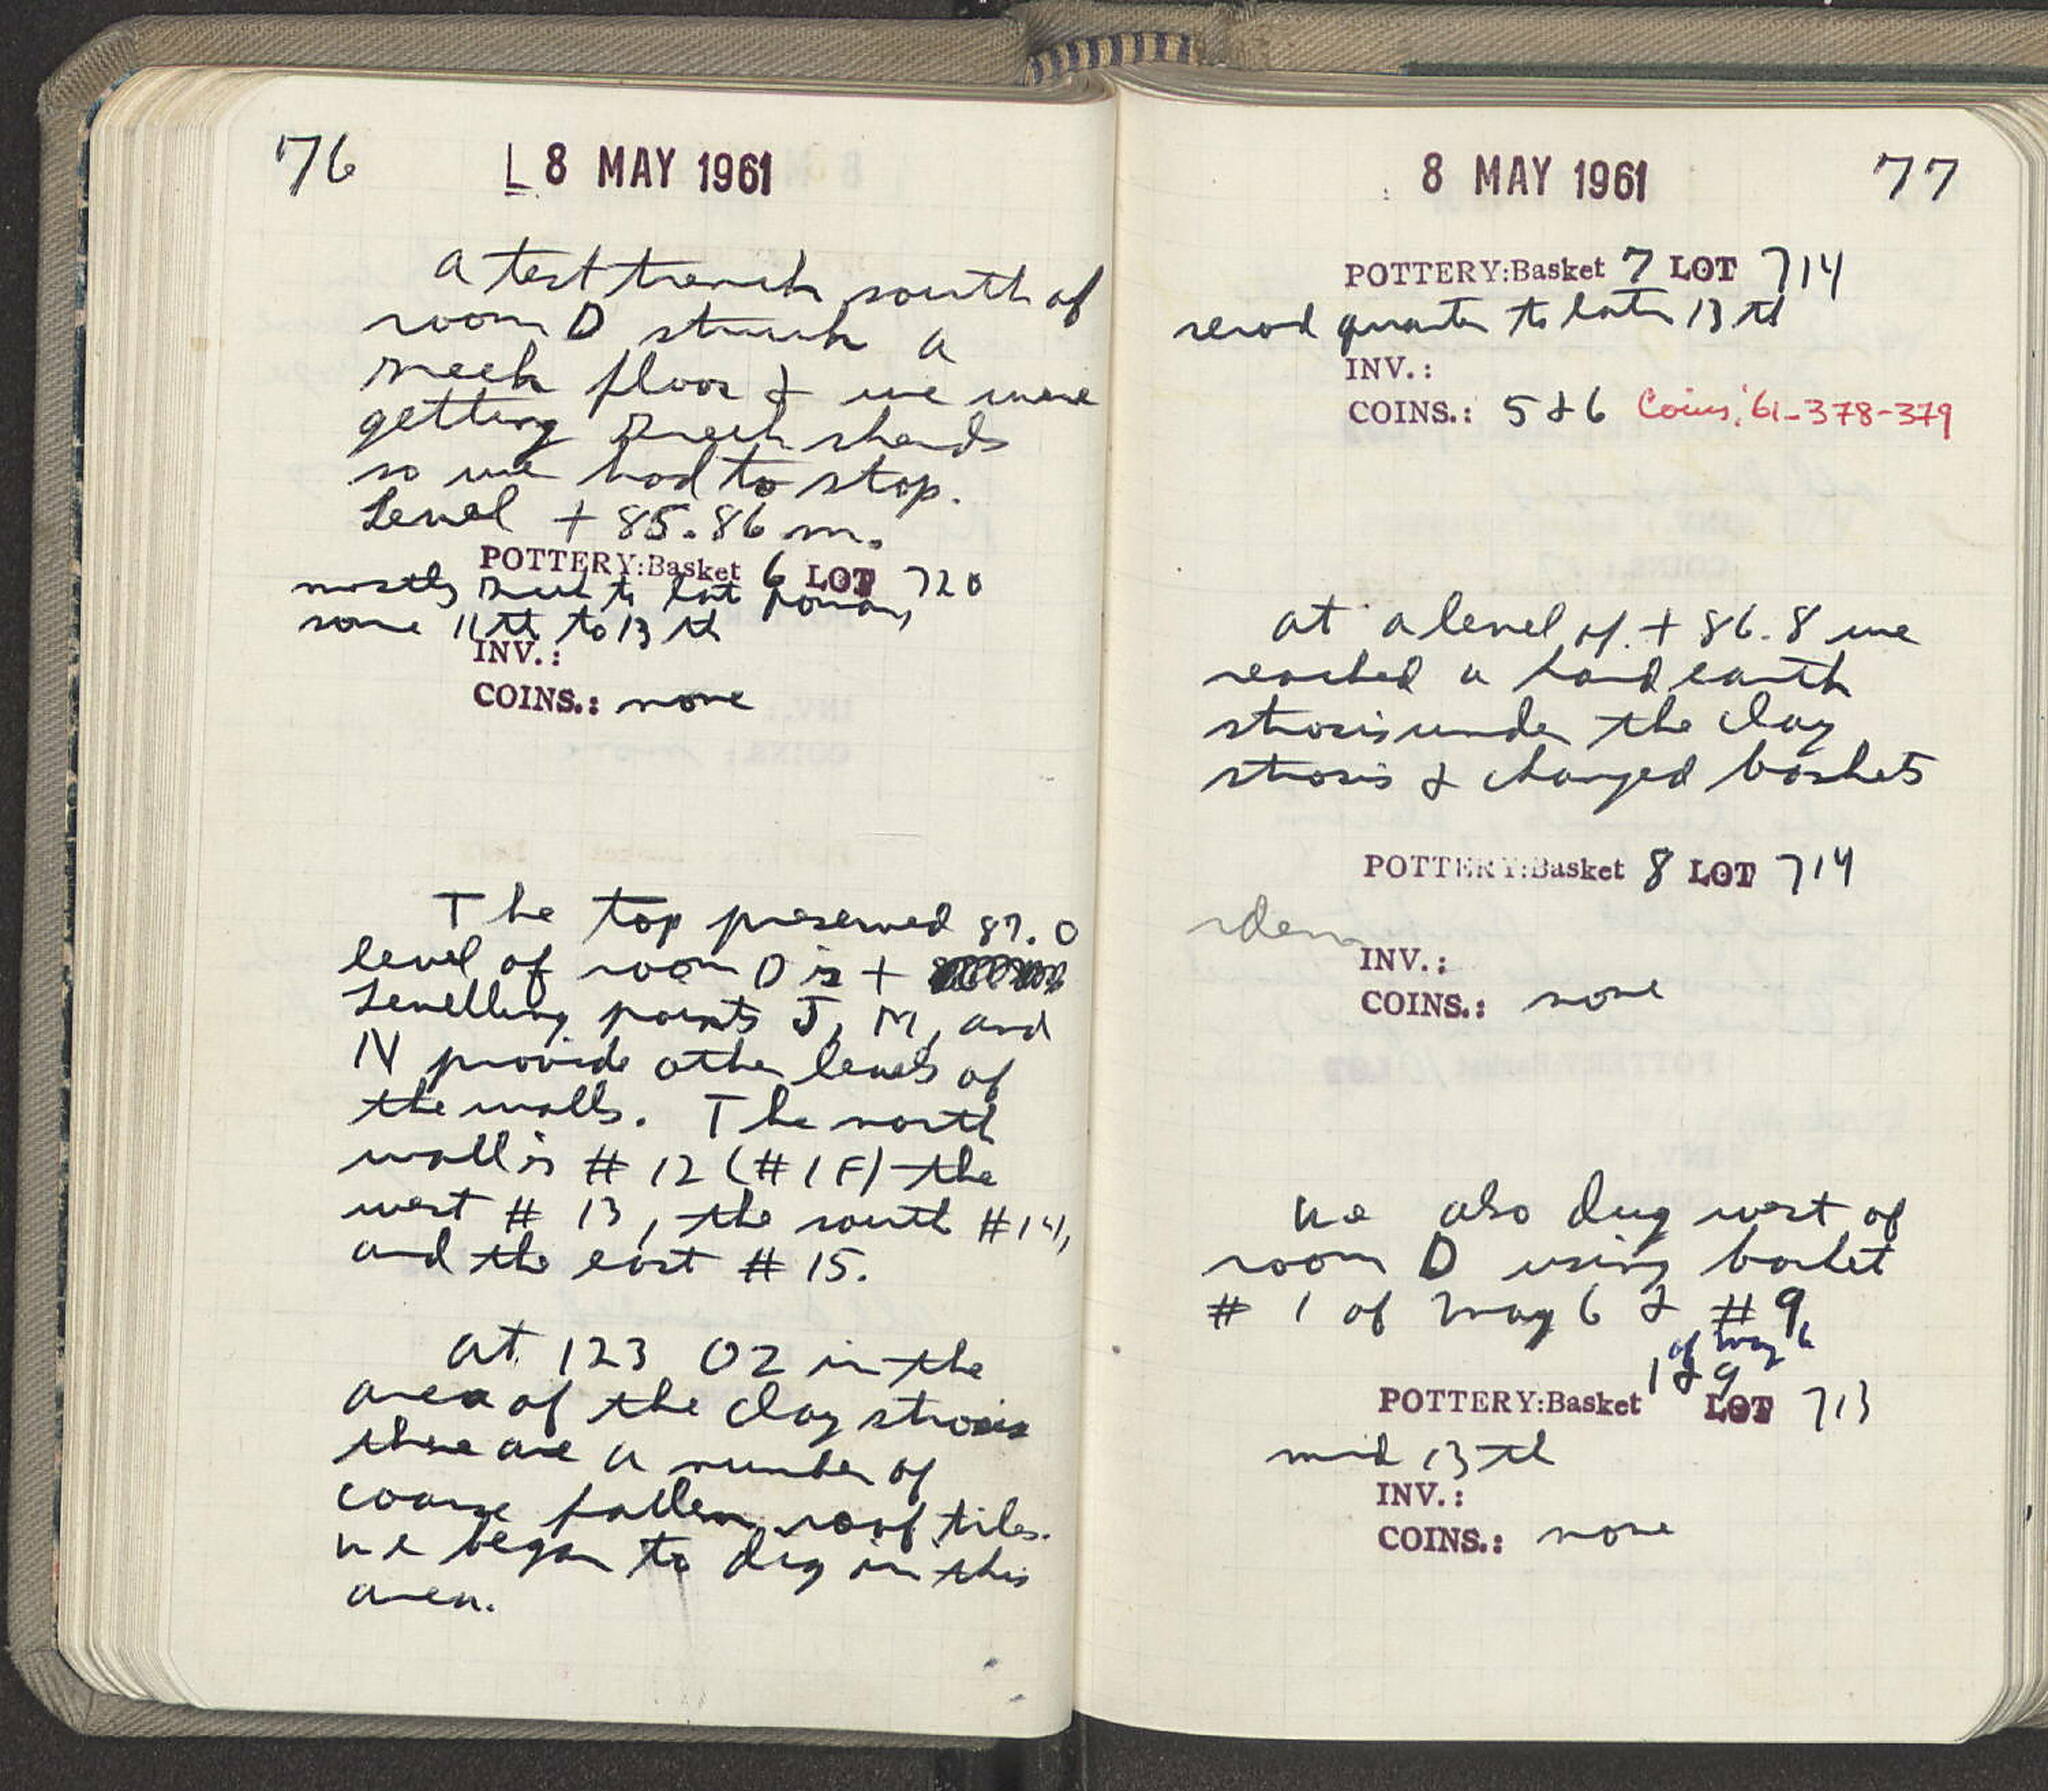 76
L 8 MAY 1961
A test trench south of
room D struck a
Greek floor & we were
getting Greek sherds
so we had to stop.
Level + 85.86 m.
POTTERY:Basket 6 LOT 720
mostly Greek to late Roman,
some 11th to 13th
INV.:
COINS.: none
The top preserved 87.0
level of room D is +
Levelling points J, M, and
N provide other levels of
the walls. The north
wall is # 12 (# 1F) the
west # 13, the south # 14,
and the east # 15.
At 123 O2 in the
area of the clay strosis
there are a number of
coarse fallen roof tiles.
We began to dig in this
area.
8 MAY 1961
77
POTTERY:Basket 7 LOT 714
second quarter to later 13th
INV.:
COINS.: 5 & 6 Coins: '61-378-379
At a level of + 86.8 we
reached a hard earth
strosis under the clay
strosis & changed baskets
POTTERY:Basket 8 LOT 714
idem
INV.:
COINS.: none
We also dug west of
room D using basket
# 1 of May 6 & # 9
of May 6
POTTERY:Basket 1 & 9 LOT 713
mid 13th
INV.:
COINS.: none